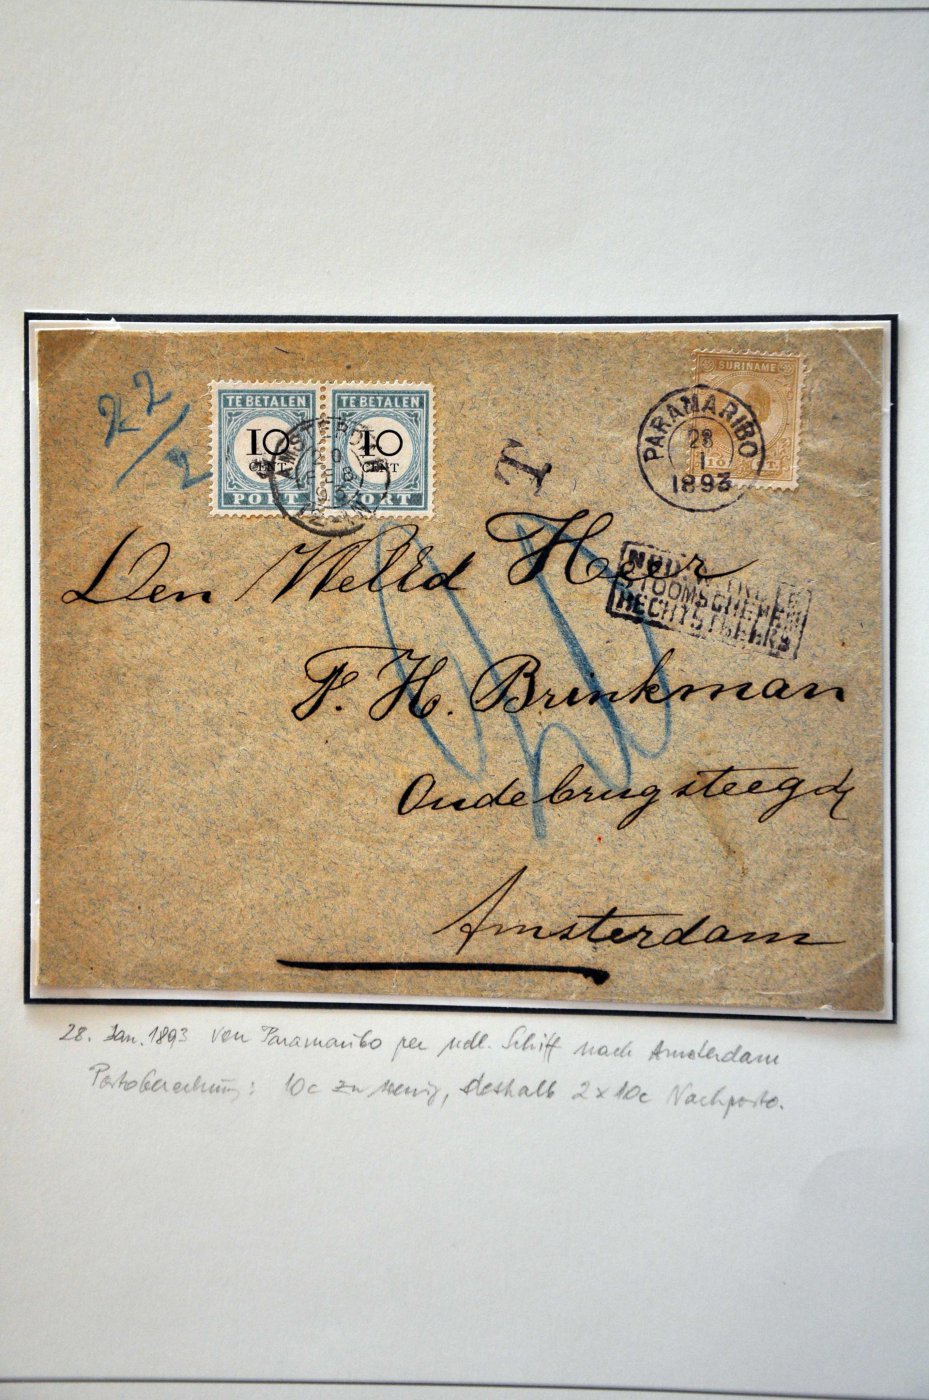 22/2
TE BETALEN TE BETALEN
10 10
CENT CENT
PORT PORT
SURINAME
10 CT
PARAMARIBO
28
1
1893
T
20
NED.
STOOMSCHEPEN
RECHTSTREEKS
Den WelEd Heer
F. H. Brinkman
Oudebrugsteeg
Amsterdam
28. Jan. 1893 von Paramaribo per ndl. Schiff nach Amsterdam
Portoberechnung: 10c zu wenig, deshalb 2x10c Nachporto.